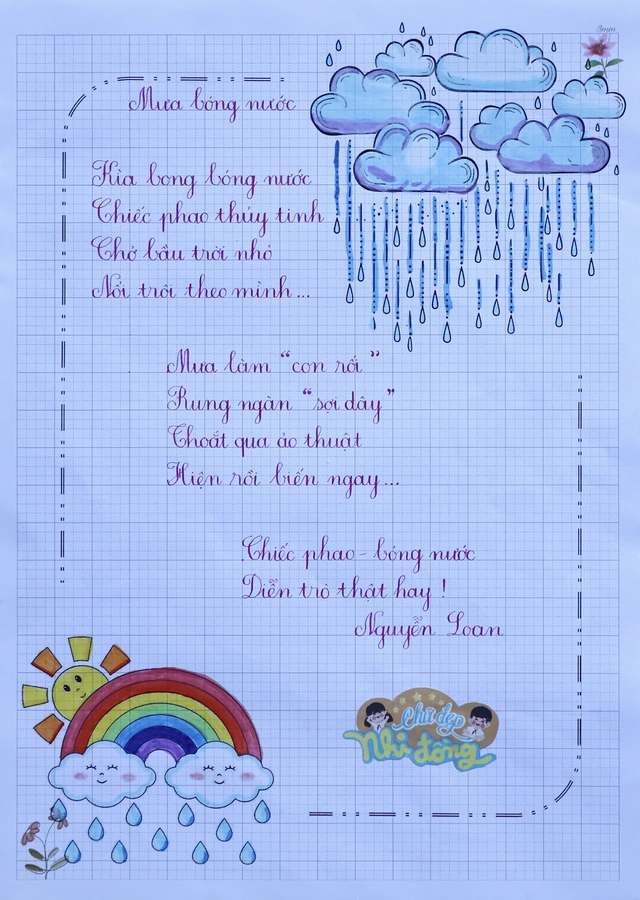 Mưa bóng nước
Kìa bong bóng nước
Chiếc phao thủy tinh
Chở bầu trời nhỏ
Nổi trôi theo mình...
Mưa làm "con rối"
Rung ngàn "sợi dây"
Thoắt qua ảo thuật
Hiện rồi biến ngay...
Chiếc phao - bóng nước
Diễn trò thật hay !
Nguyễn Loan
Chữ đẹp
Nhi đồng